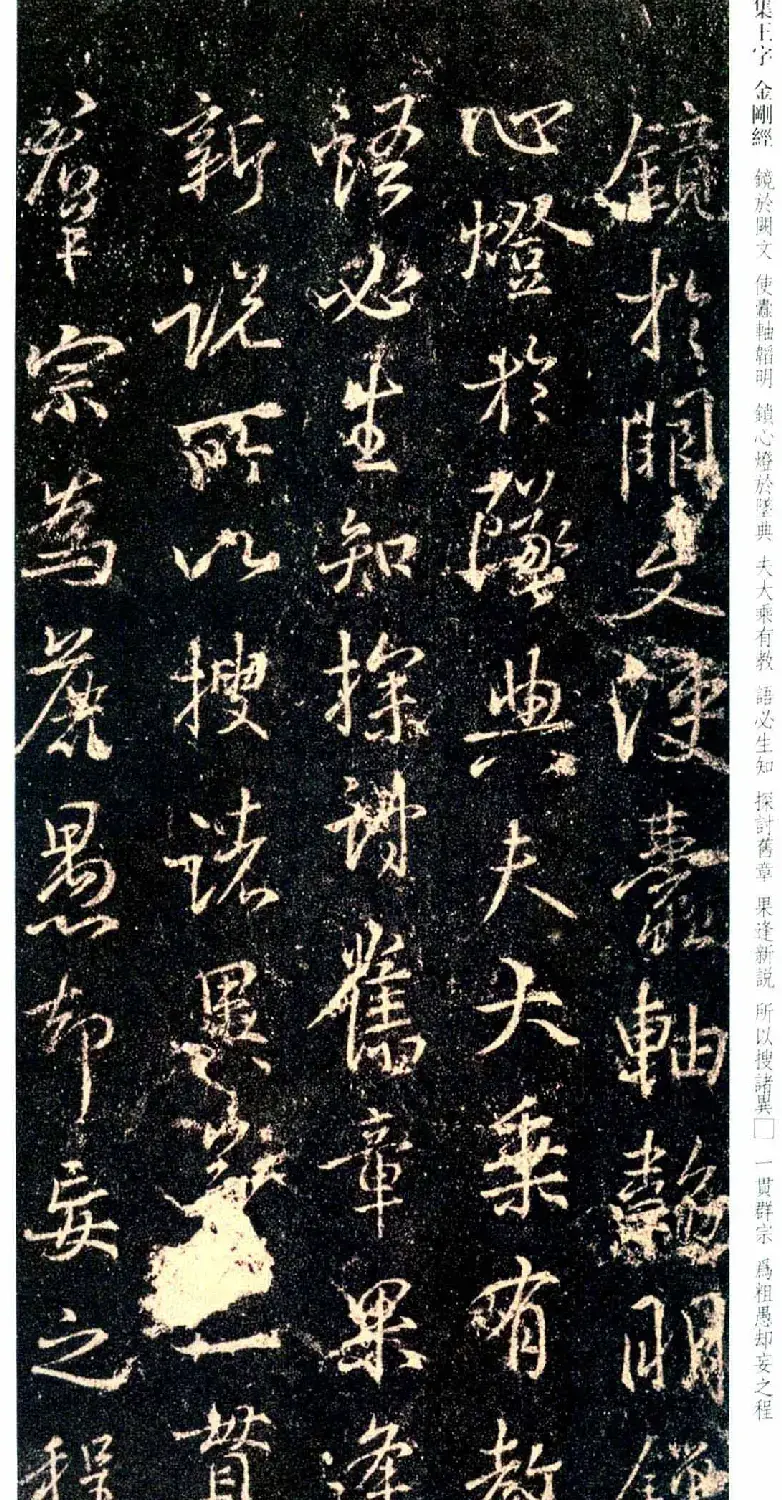 集王字 金剛經 鏡於闕文 使蠹軸韜明 鎖心燈於墜典 夫大乘有教 語必生知 探討舊章 果逢新説 所以搜諸異□ 一貫群宗 爲粗愚却妄之程
鏡於闕文使蠹軸韜明鎖
心燈於墜典夫大乘有教
語必生知探討舊章果逢
新説所以搜諸異一貫
羣宗為麁愚却妄之程